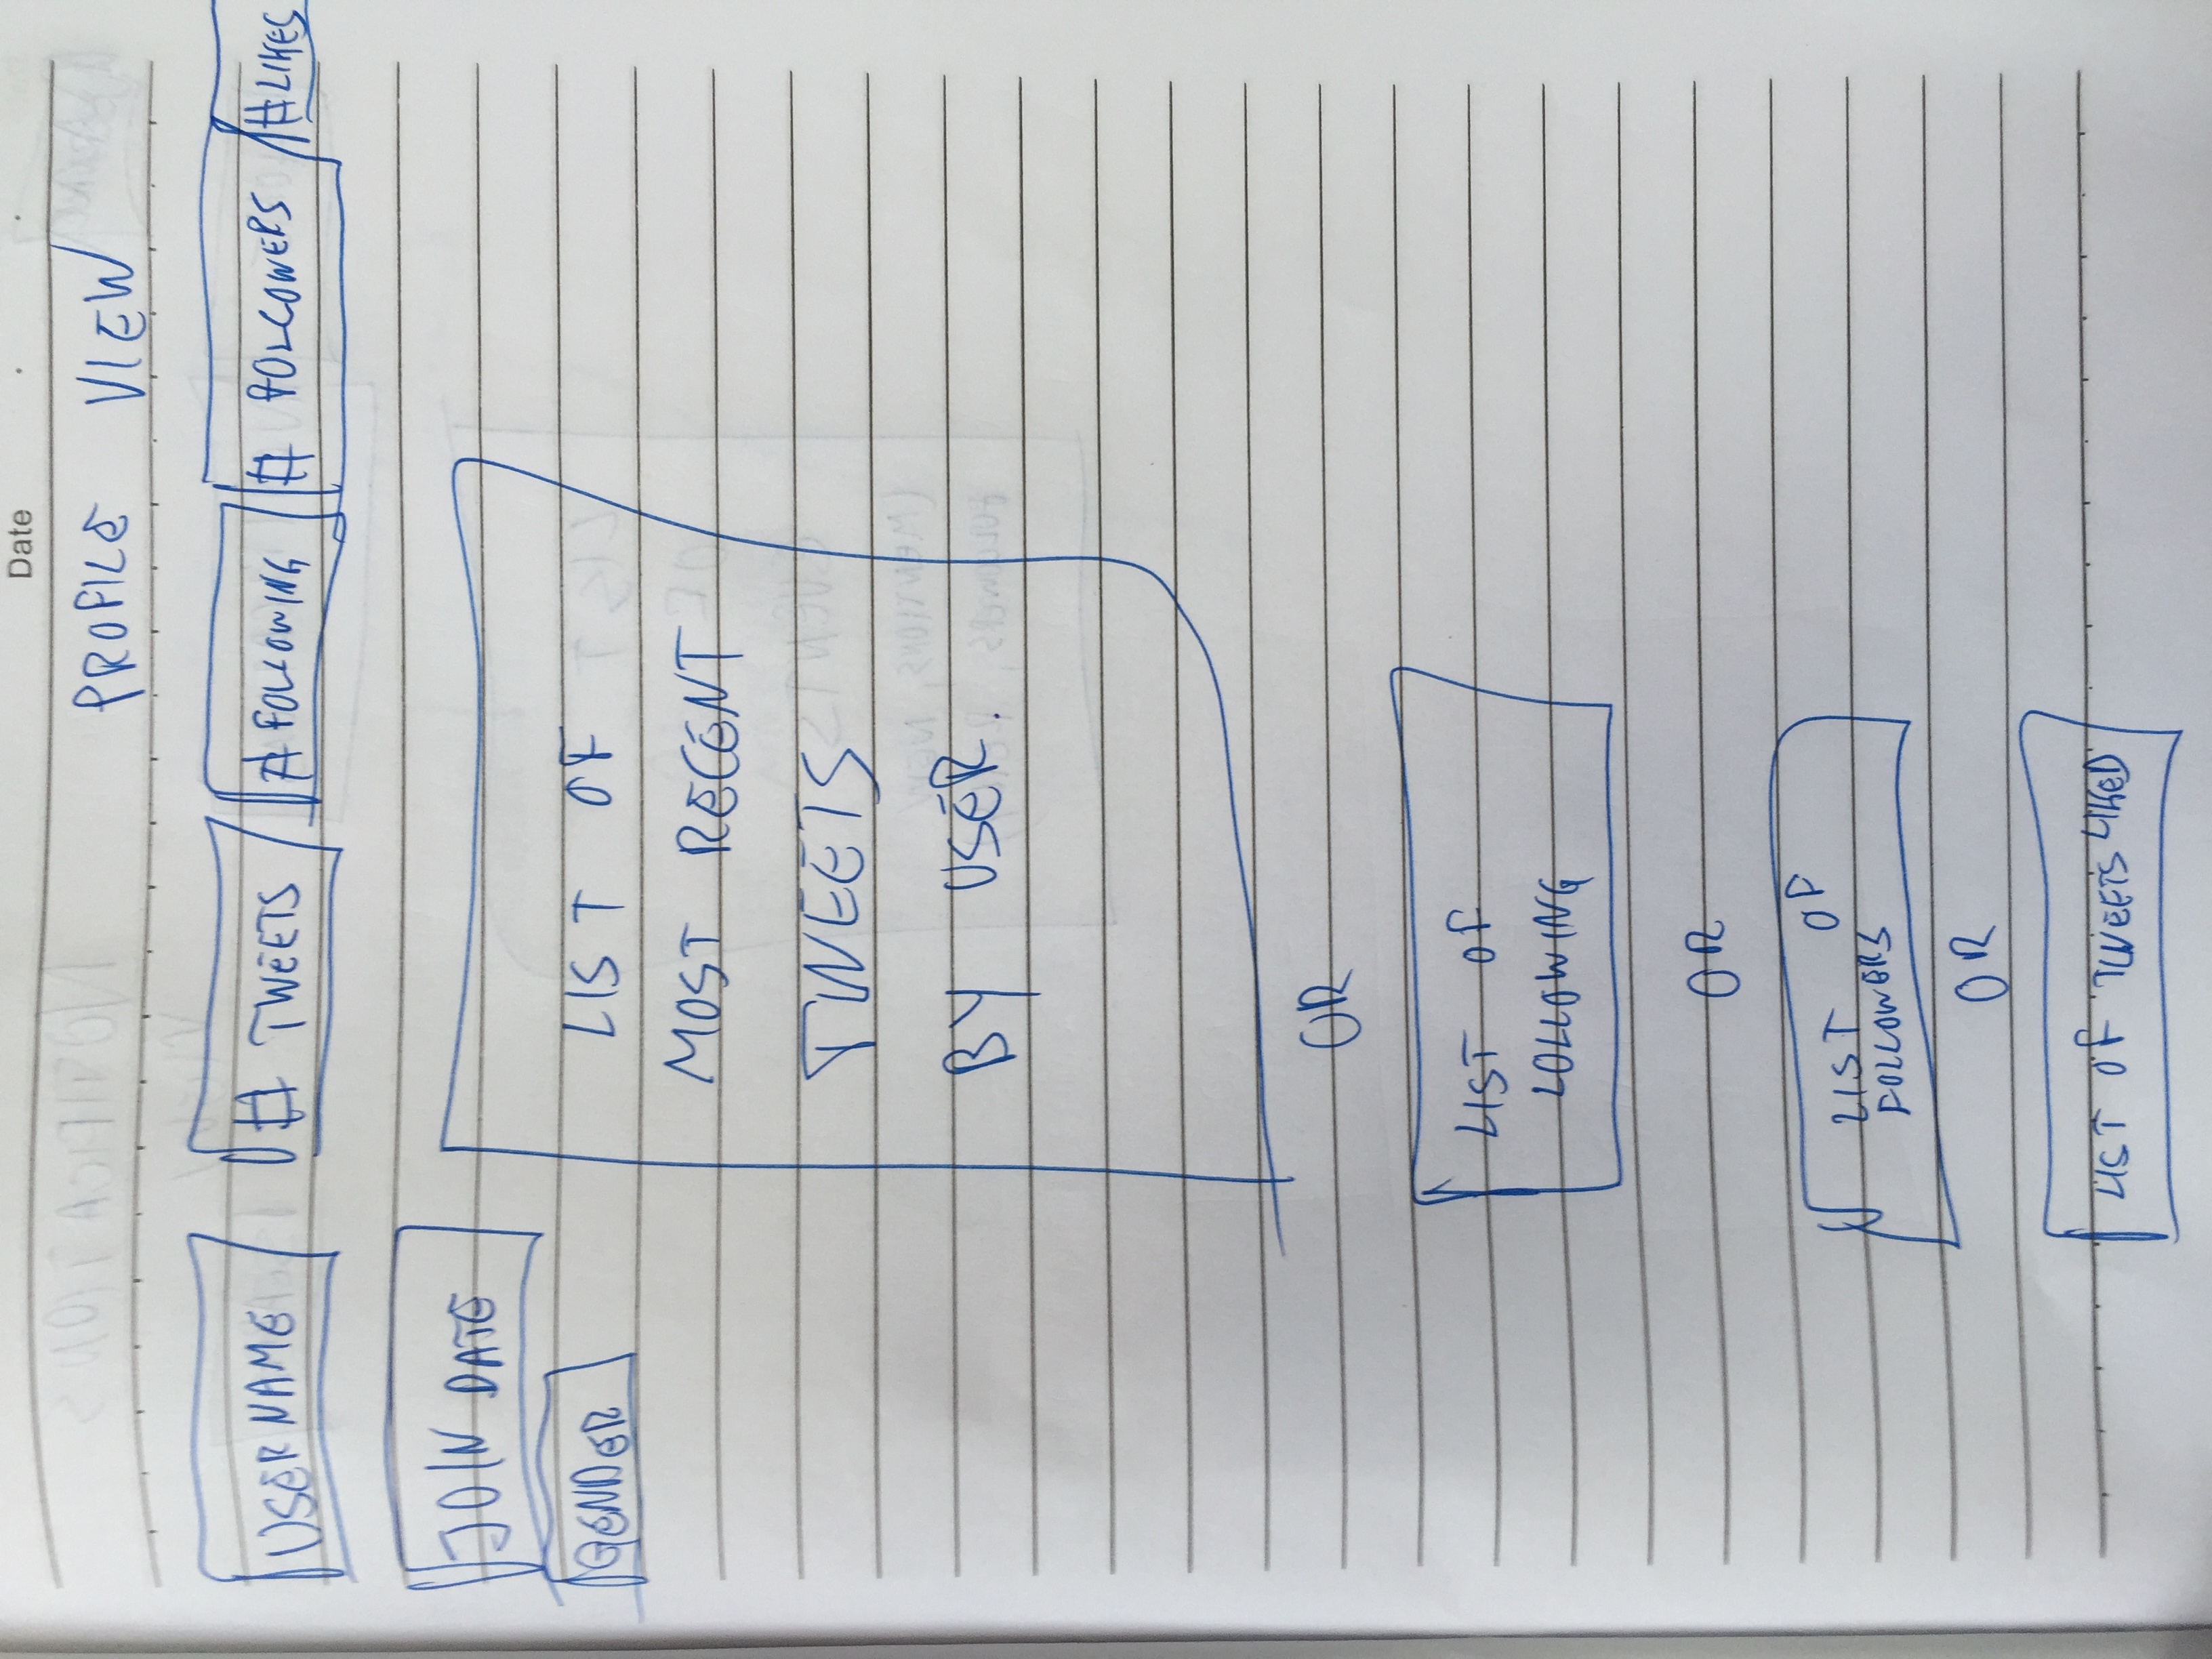 Date
PROFILE VIEW
USERNAME # TWEETS # FOLLOWING # FOLLOWERS # LIKES
JOIN DATE
GENDER
LIST OF
MOST RECENT
TWEETS
BY USER.
OR
LIST OF
LOLLOWING
OR
LIST OF
FOLLOWERS
OR
LIST OF TWEETS LIKED